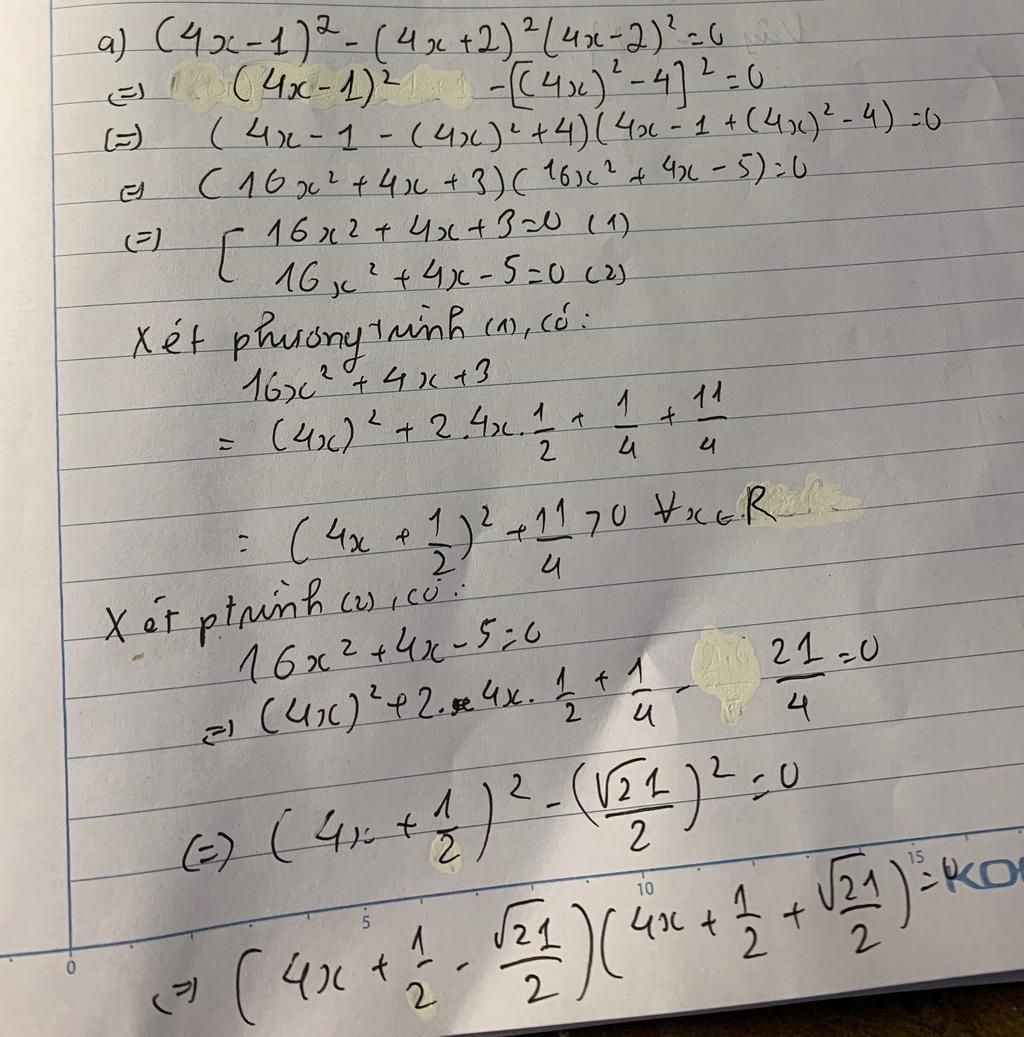 a) (4x-1)² - (4x+2)²(4x-2)² = 0
(=) (4x-1)² - [(4x)² - 4]² = 0
(=) (4x - 1 - (4x)² + 4)(4x - 1 + (4x)² - 4) = 0
(=) (16x² + 4x + 3)(16x² + 4x - 5) = 0
(=) [ 16x² + 4x + 3 = 0 (1)
16x² + 4x - 5 = 0 (2)
Xét phương trình (1), có:
16x² + 4x + 3
= (4x)² + 2.4x.1/2 + 1/4 + 11/4
= (4x + 1/2)² + 11/4 > 0 ∀x∈R
Xét ptrình (2), có:
16x² + 4x - 5 = 0
(=) (4x)² + 2.4x.1/2 + 1/4 - 21/4 = 0
(=) (4x + 1/2)² - (√21/2)² = 0
(=) (4x + 1/2 - √21/2)(4x + 1/2 + √21/2) = 0
0 5 10 15